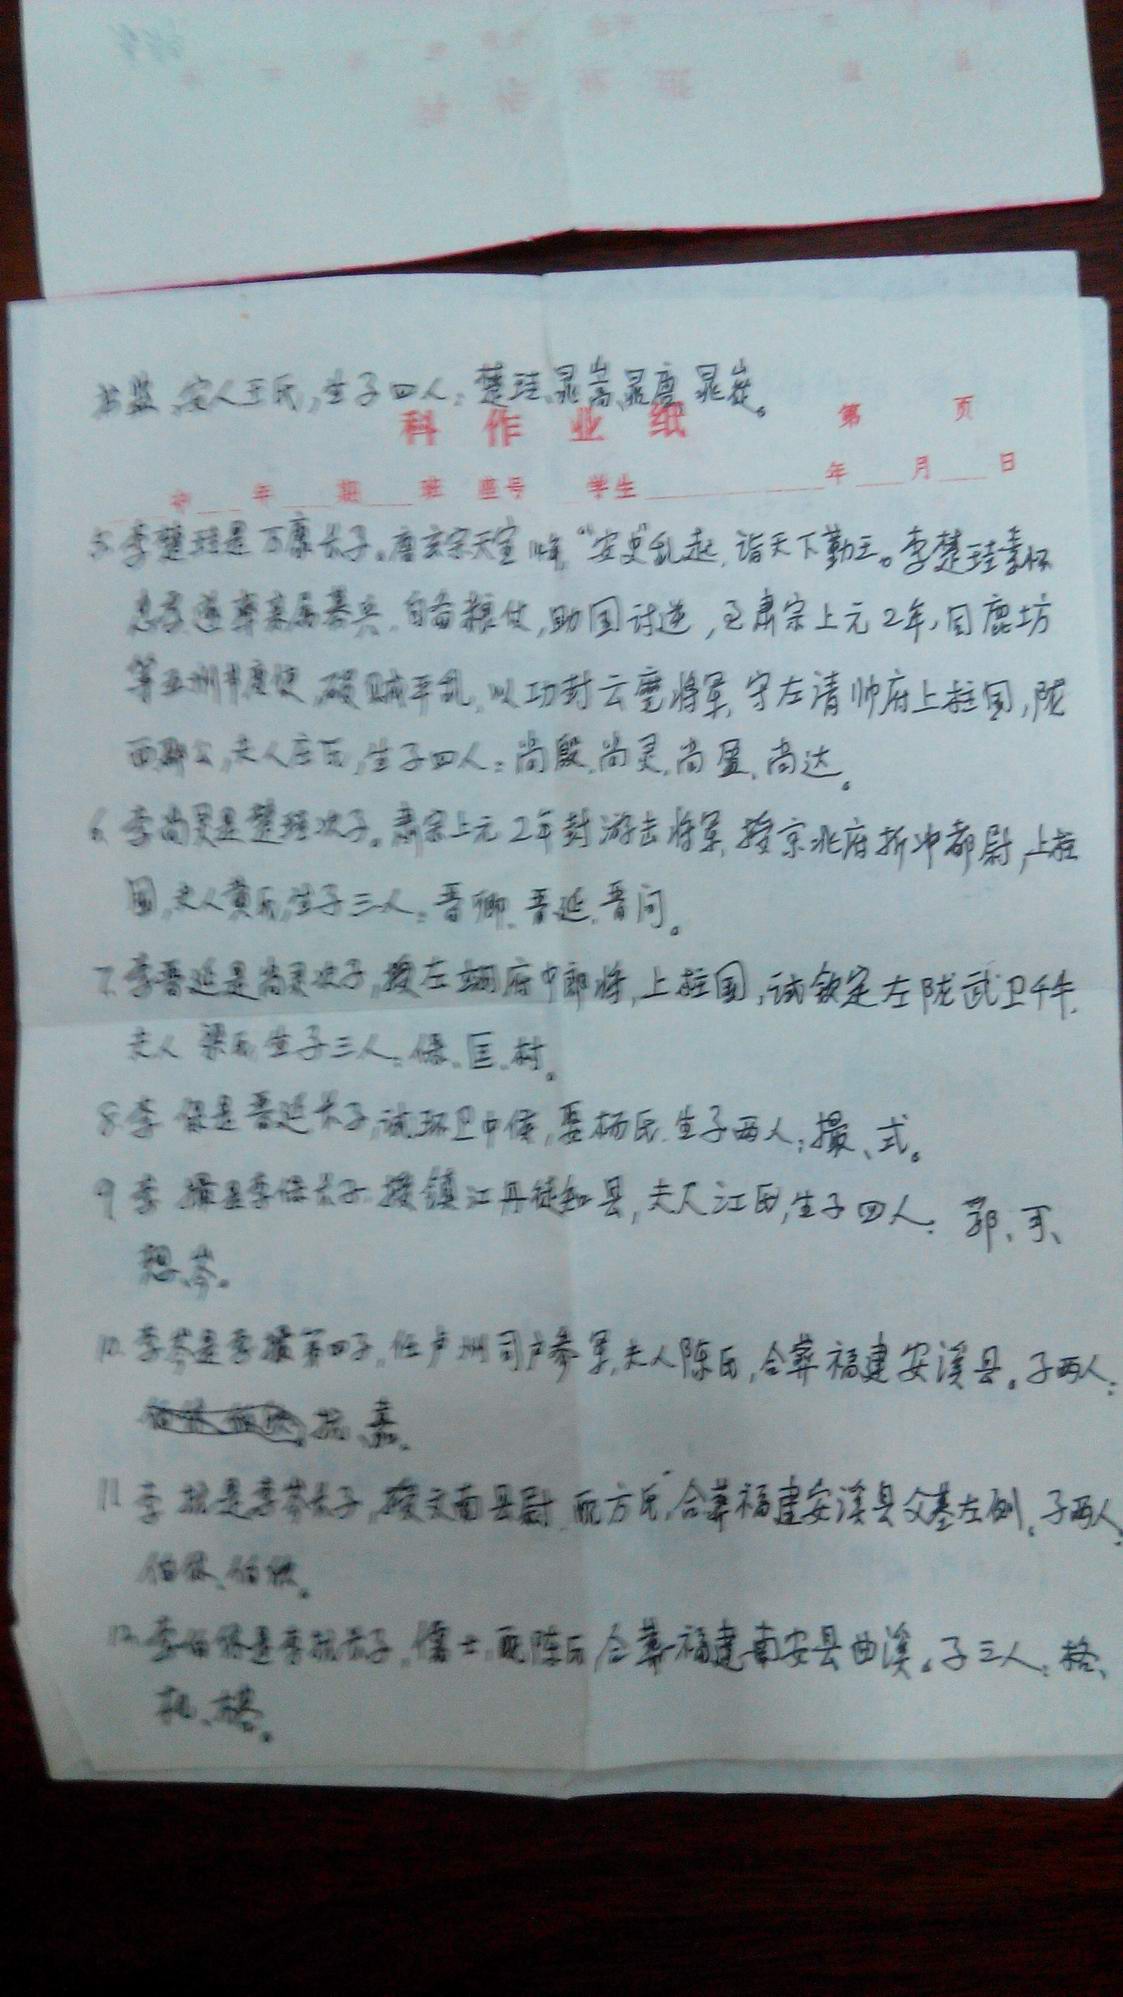 书监,安人王氏,生子四人:楚珪、晁嵩、晁唐、晁嵸。
科作业纸 第 页
初 年 期 班 座号 学生 年 月 日
5.李楚珪是万康长子。唐玄宗天宝 "安史"乱起,诏天下勤王。李楚珪素怀
忠孝,遂率亲属募兵,自备粮仗,助国讨逆,至肃宗上元2年,同鹿坊
等五州节度使,破贼平乱,以功封云麾将军,守左清帅府上柱国,陇
西郡公,夫人庄氏,生子四人:尚殷、尚灵、尚显、尚达。
6.李尚灵是楚珪次子。肃宗上元2年封游击将军,授京兆府折冲都尉,上柱
国,夫人黄氏,生子三人:晋卿、晋延、晋问。
7.李晋延是尚灵次子,授左翊府中郎将,上柱国,试钦定左陇武卫千牛,
夫人梁氏,生子三人:保、匡、树。
8.李保是晋延长子,试环卫中侯,娶杨氏,生子两人:撮、式。
9.李撮是李保长子,授镇江丹徒知县,夫人江氏,生子四人: 郭、
想、岑。
10.李岑是李撮第四子,任卢州司户参军,夫人陈氏,合葬福建安溪县。子两人:
11.李 是李岑长子,授文南县尉,配方氏,合葬福建安溪县父墓左侧,子两人:
12. 长子,儒士,配陈氏,合葬福建南安县曲溪。子三人:格、